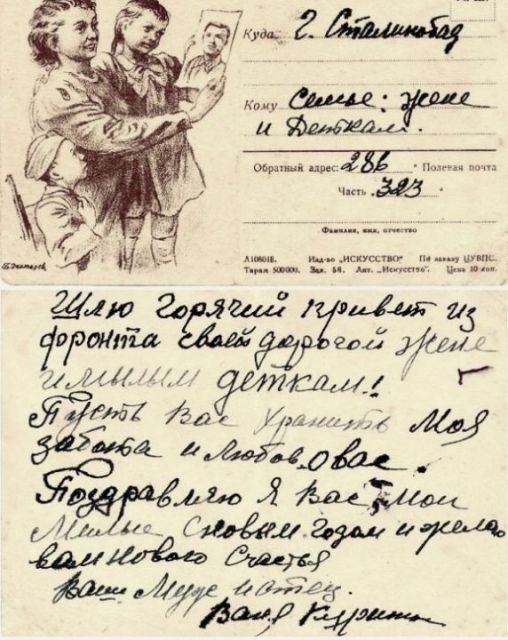 Куда г. Сталинобад
Кому Семье: жене
и Деткам.
Обратный адрес: 286 Полевая почта
Часть 323
Фамилия, имя, отчество
А106018. Изд-во „ИСКУССТВО“ По заказу ЦУВПС.
Тираж 500000. Зак. 58. Лит. „Искусство“. Цена 10 коп.
Шлю горячий привет из
фронта своей дорогой жене
и милым деткам!
Пусть вас хранить моя
забота и любов. о вас.
Поздравляю я вас мои
милые с новым годом и желаю
вам нового счастья
Ваш муж и отец.
Ваня